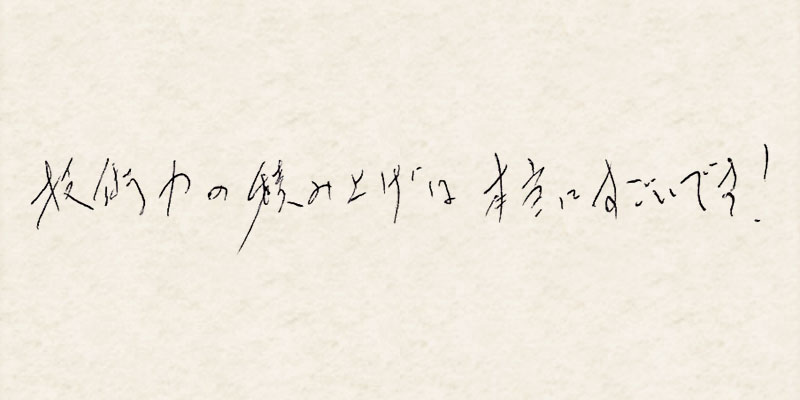 技術力の積み上げは本当にすごいです!